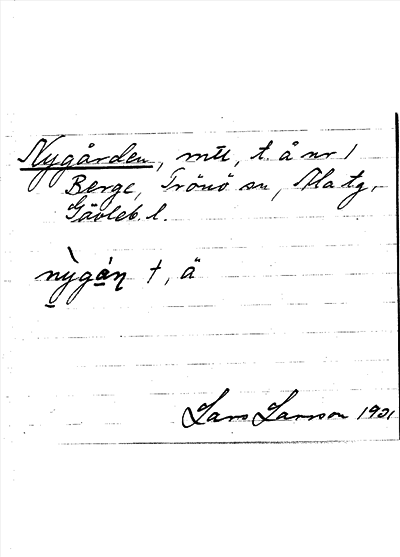 Nygården, mtl, t. å nr 1
Berge, Trönö sn, Ala tg,
Gävleb. l.
nỳgáṇ t, ä
Lars Larsson 1901